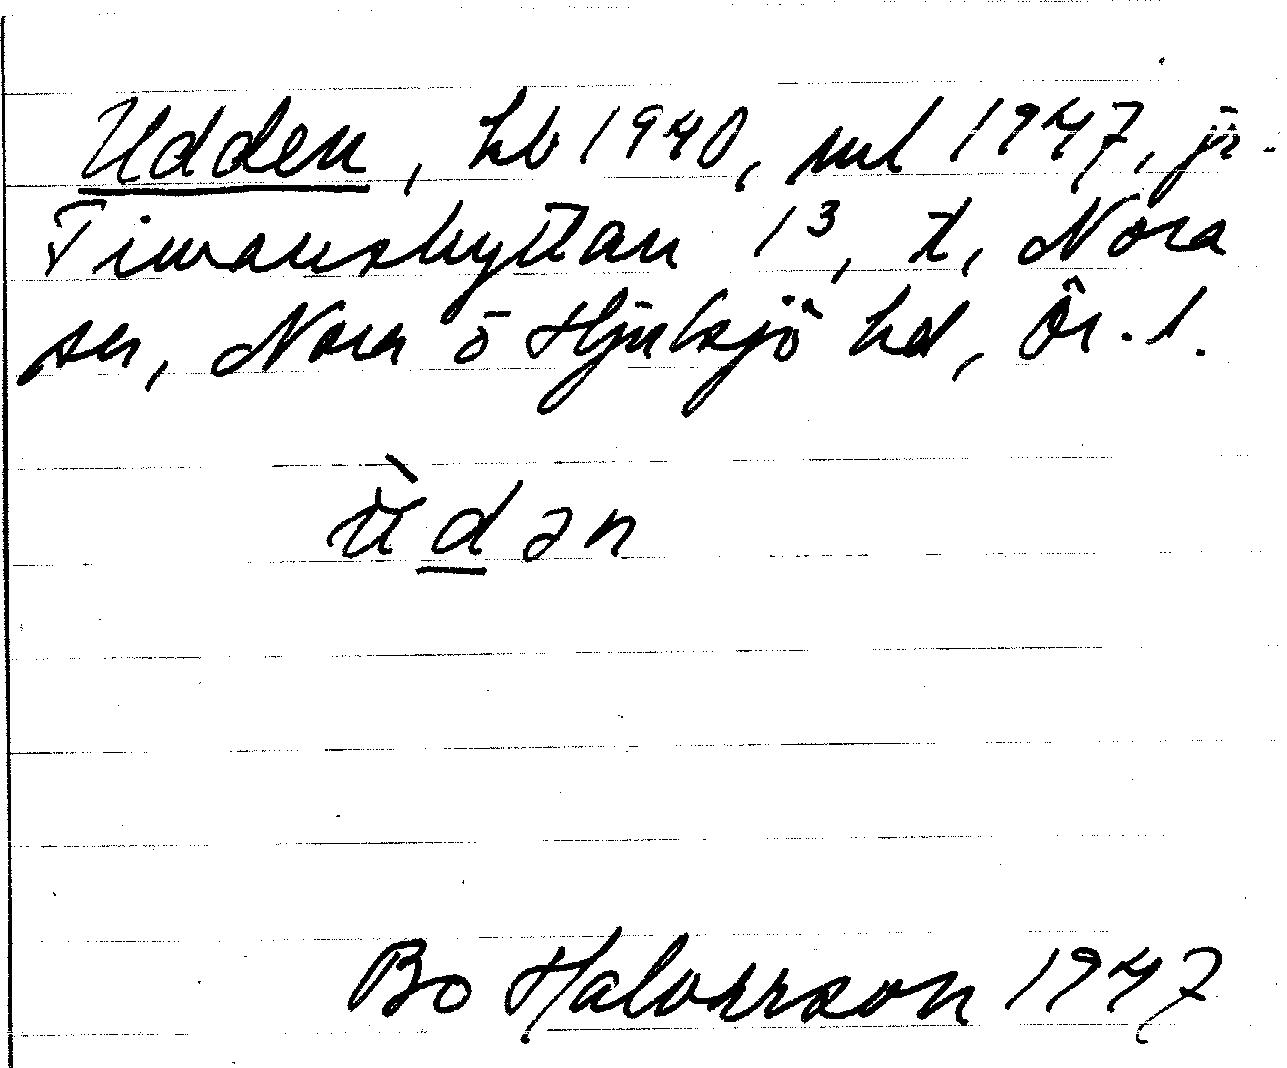 Udden, hb 1940, ml 1947, jr.
Timanshyttan 1³, t, Nora
sn, Nora o Hjulsjö hd, Ör. l.
ùdən
Bo Halvarsson 1947